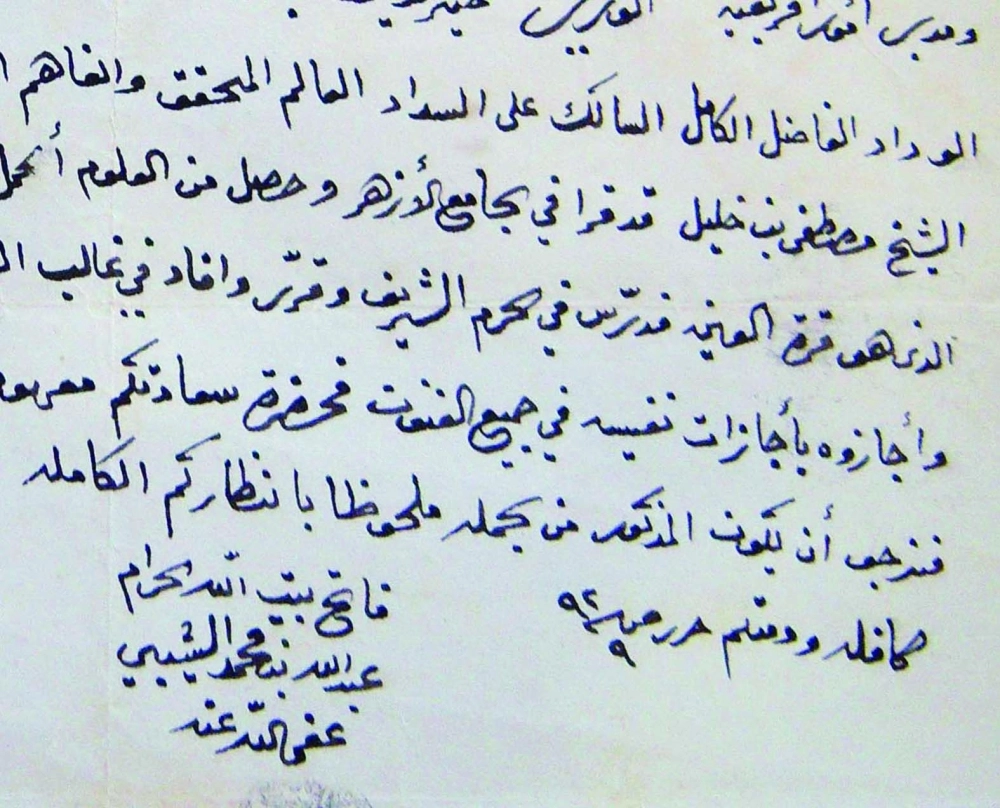 ومدير أمور افريقيه
الوداد الفاضل الكامل السالك على السداد العالم المحقق والفاهم
الشيخ مصطفى بن خليل قد قرا في الجامع الأزهر وحصل من العلوم
الذي هو قرة العين فدرّس في الحرم الشريف وقرّر وافاد في غالب
وأجازوه بأجازات نفيسه في جميع الفنون فحضرة سعادتكم
فنرجو أن يكون المذكور من جمله ملحوظا بانظاركم الكامله
كافله ودمتم حرر في ٩ ٩٢
فاتح بيت الله الحرام
عبد الله بن محمد الشيبي
عفى الله عنه